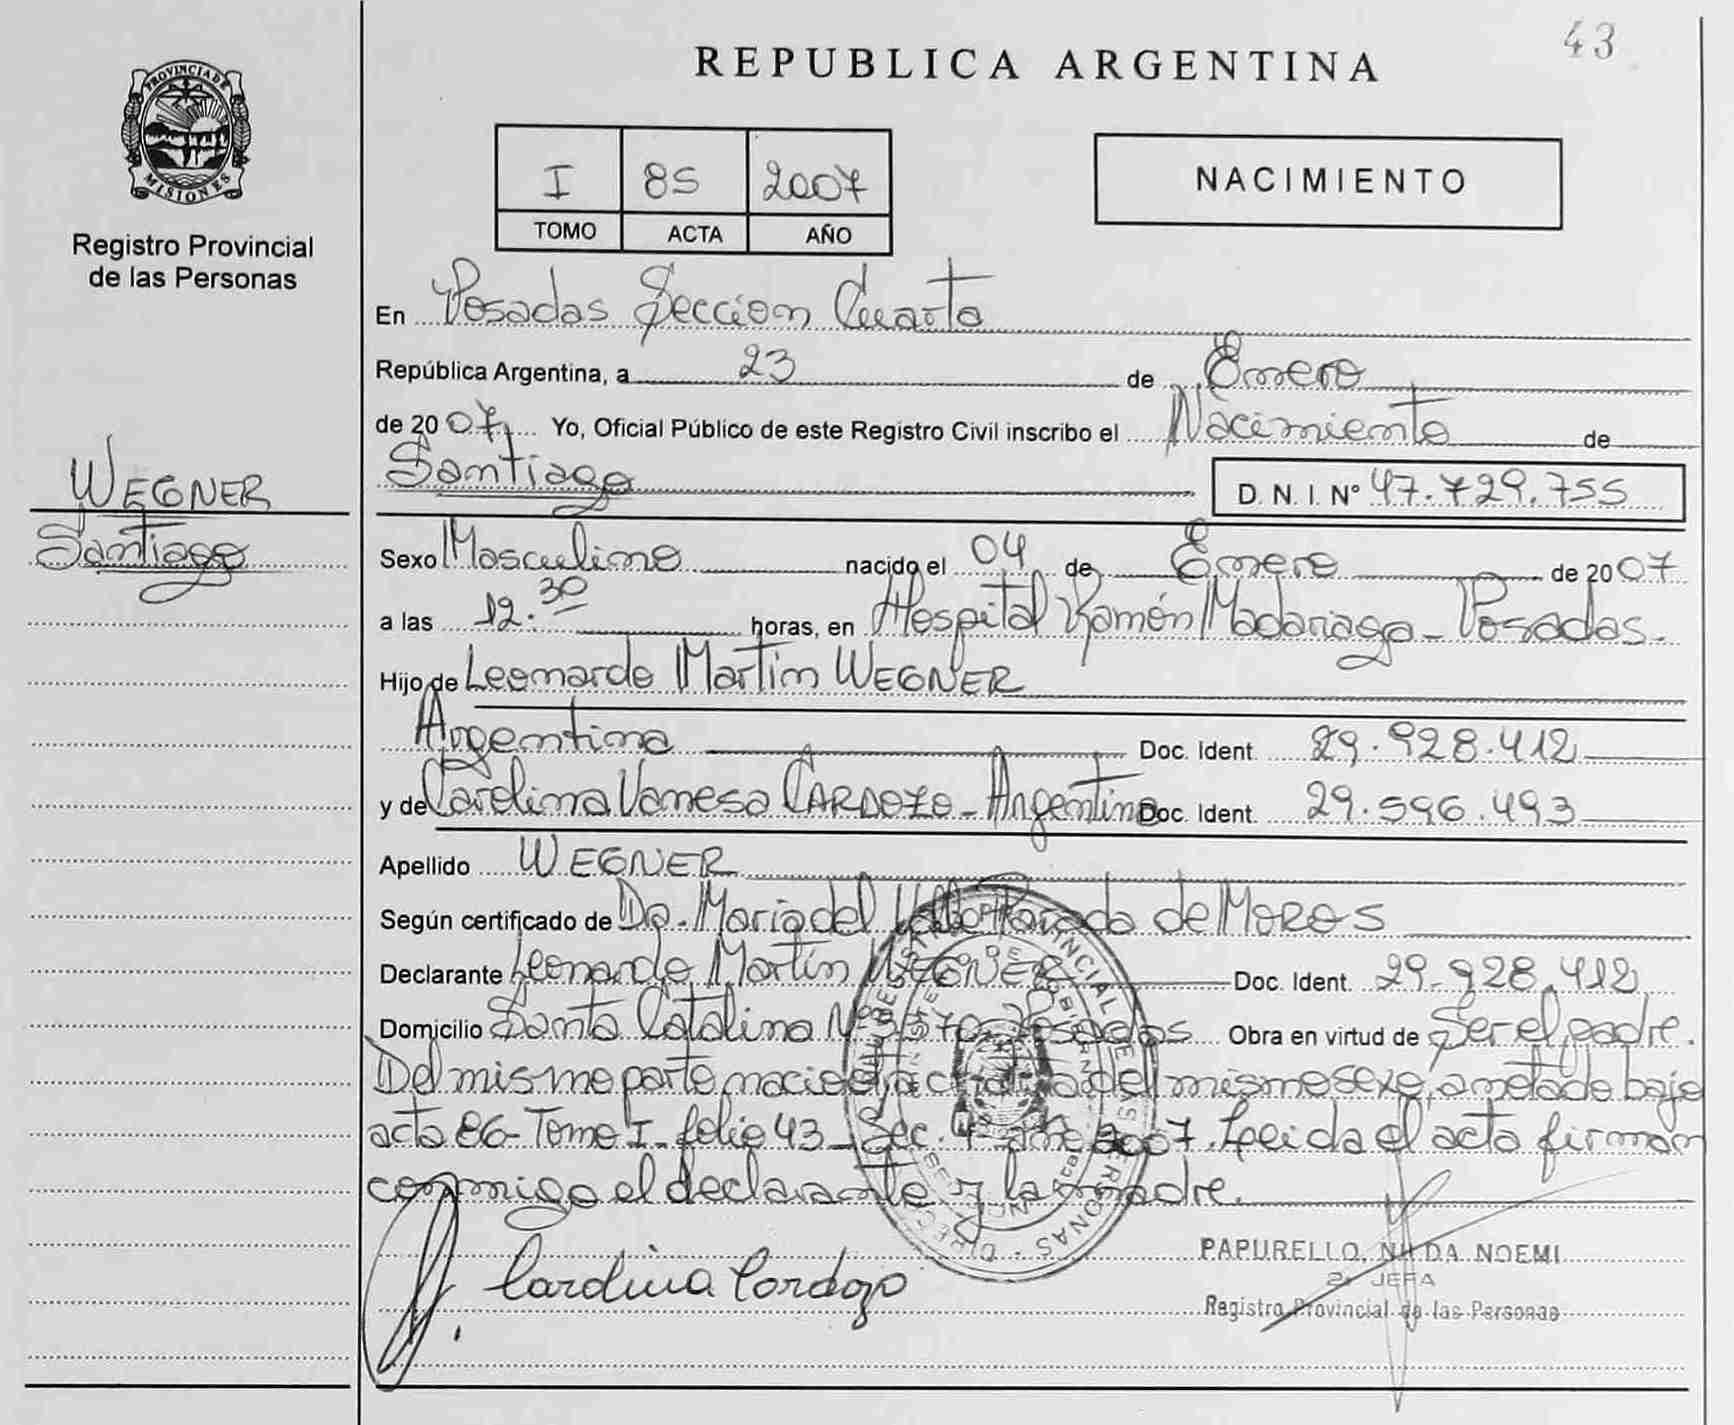 43
REPUBLICA ARGENTINA
PROVINCIA DE
MISIONES
Registro Provincial
de las Personas
I 85 2007
TOMO ACTA AÑO
NACIMIENTO
En Posadas Sección Cuarta
República Argentina, a 23 de Enero
de 2007 Yo, Oficial Público de este Registro Civil inscribo el Nacimiento de
Santiago D. N. I. Nº 47.729.755
WEGNER
Santiago
Sexo Masculino nacido el 04 de Enero de 2007
a las 12.30 horas, en Hospital Ramón Madariaga - Posadas -
Hijo de Leonardo Martín WEGNER
Argentina Doc. Ident. 29.928.412
y de Carolina Vanesa CARDOZO - Argentina Doc. Ident. 29.596.493
Apellido WEGNER
Según certificado de Dra. María del Valle Parada de MOROS
Declarante Leonardo Martín WEGNER Doc. Ident. 29.928.412
Domicilio Santa Catalina Nº Posadas Obra en virtud de Ser el padre.
Del mismo parto nació otra criatura del mismo sexo, anotado bajo
acta 86 - Tomo I - folio 43 - Sec. 4ª año 2007. Leida el acta firman
conmigo el declarante y la madre.
Carolina Cardozo
PAPURELLO, NILDA NOEMI
2ª JEFA
Registro Provincial de las Personas